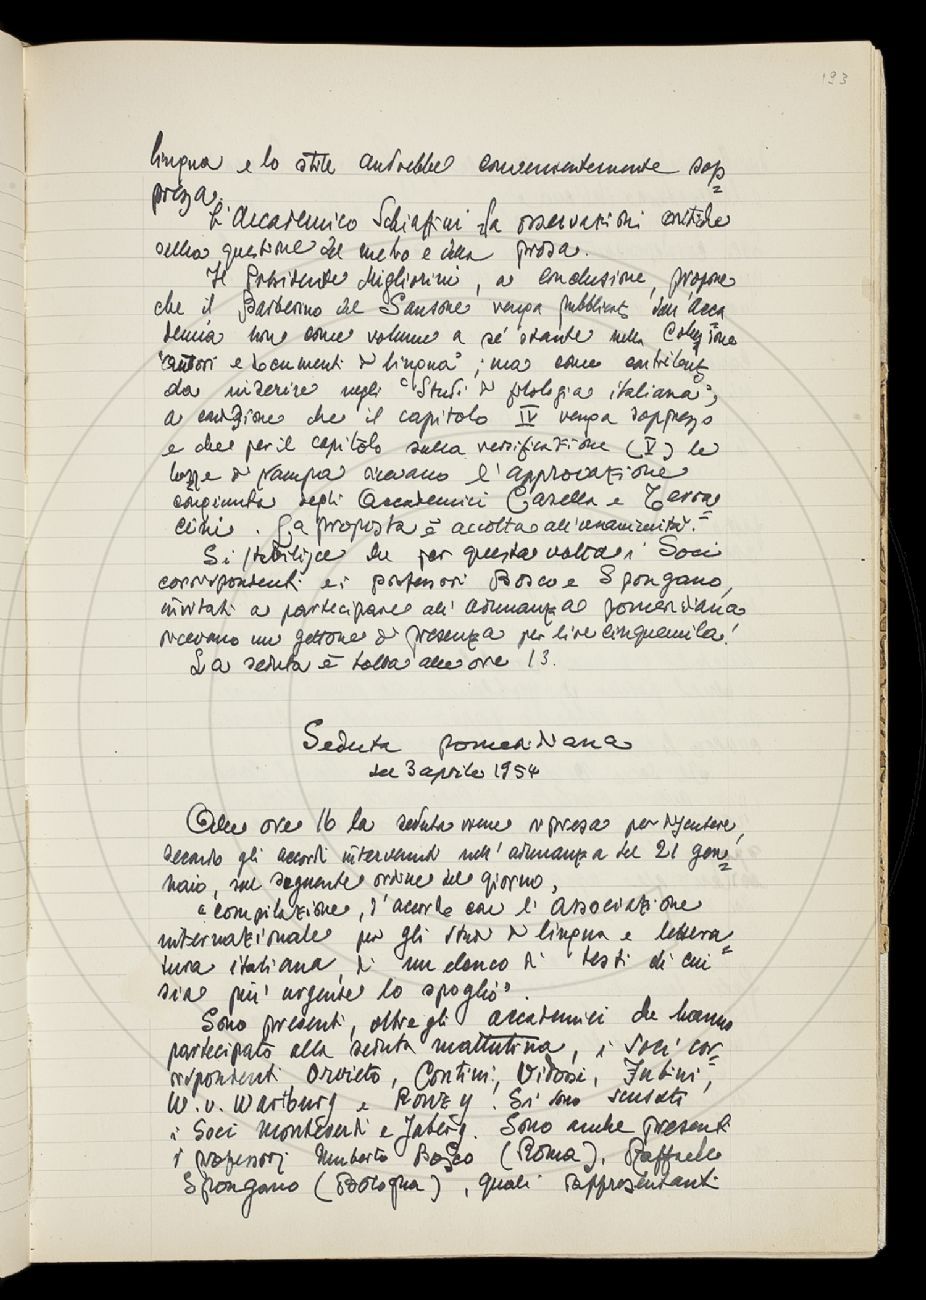 193
lingua e lo stile andrebbe convenientemente sop=
pressa.
L'Accademico Schiaffini fa osservazioni critiche
sulla questione del metro e della prosa.
Il Presidente Migliorini, a conclusione, propone
che il Barberino del Sansone venga pubblicato dall'Acca
demia non come volume a sé stante nella Collezione
"autori e documenti di lingua"; ma come contributo
da inserire negli "Studi di filologia italiana";
a condizione che il capitolo IV venga soppresso
e che per il capitolo sulla versificazione (V) le
bozze di stampa ricevano l'approvazione
congiunta degli Accademici Casella e Terra=
cini. La proposta è accolta all'unanimità.=
Si stabilisce che per questa volta i Soci
corrispondenti e i professori Bosco e Spongano,
invitati a partecipare all'adunanza pomeridiana
ricevano un gettone di presenza per lire cinquemila.
La seduta è tolta alle ore 13.
Seduta pomeridiana
del 3 aprile 1954
Alle ore 16 la seduta viene ripresa per discutere,
secondo gli accordi intervenuti nell'adunanza del 21 gen=
naio, sul seguente ordine del giorno,
"compilazione, d'accordo con l'Associazione
internazionale per gli studi di lingua e lettera=
tura italiana, di un elenco di testi di cui
sia più urgente lo spoglio".
Sono presenti, oltre gli accademici che hanno
partecipato alla seduta mattutina, i soci cor=
rispondenti Orvieto, Contini, Vidossi, Fubini,
W. v. Wartburg e Ronzy. Si sono scusati
i Soci Monteverdi e Jaberg. Sono anche presenti
i professori Umberto Bosco (Roma), Raffaele
Spongano (Bologna), quali rappresentanti